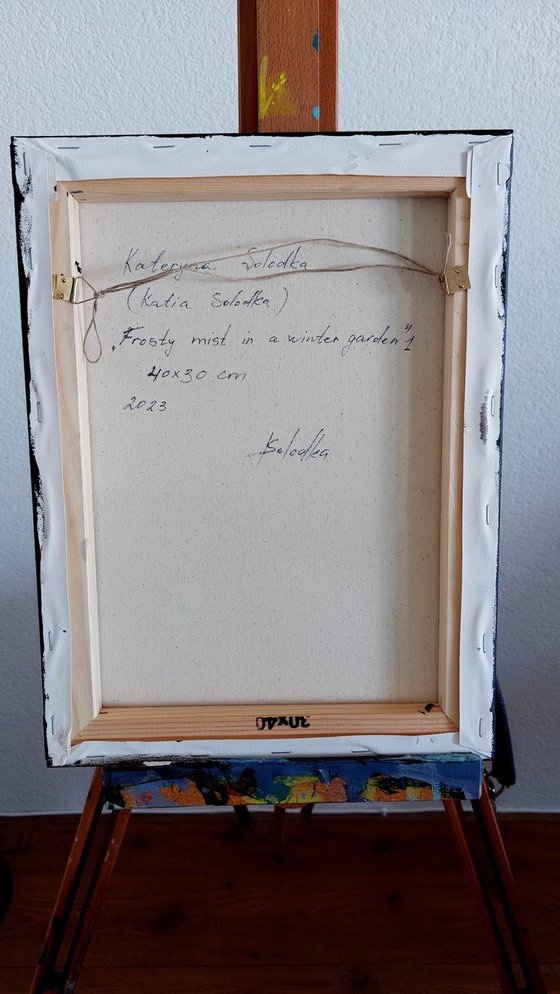 Kateryna Solodka
(Katia Solodka)
„Frosty mist in a winter garden" 1
40x30 cm
2023
Solodka
30x40